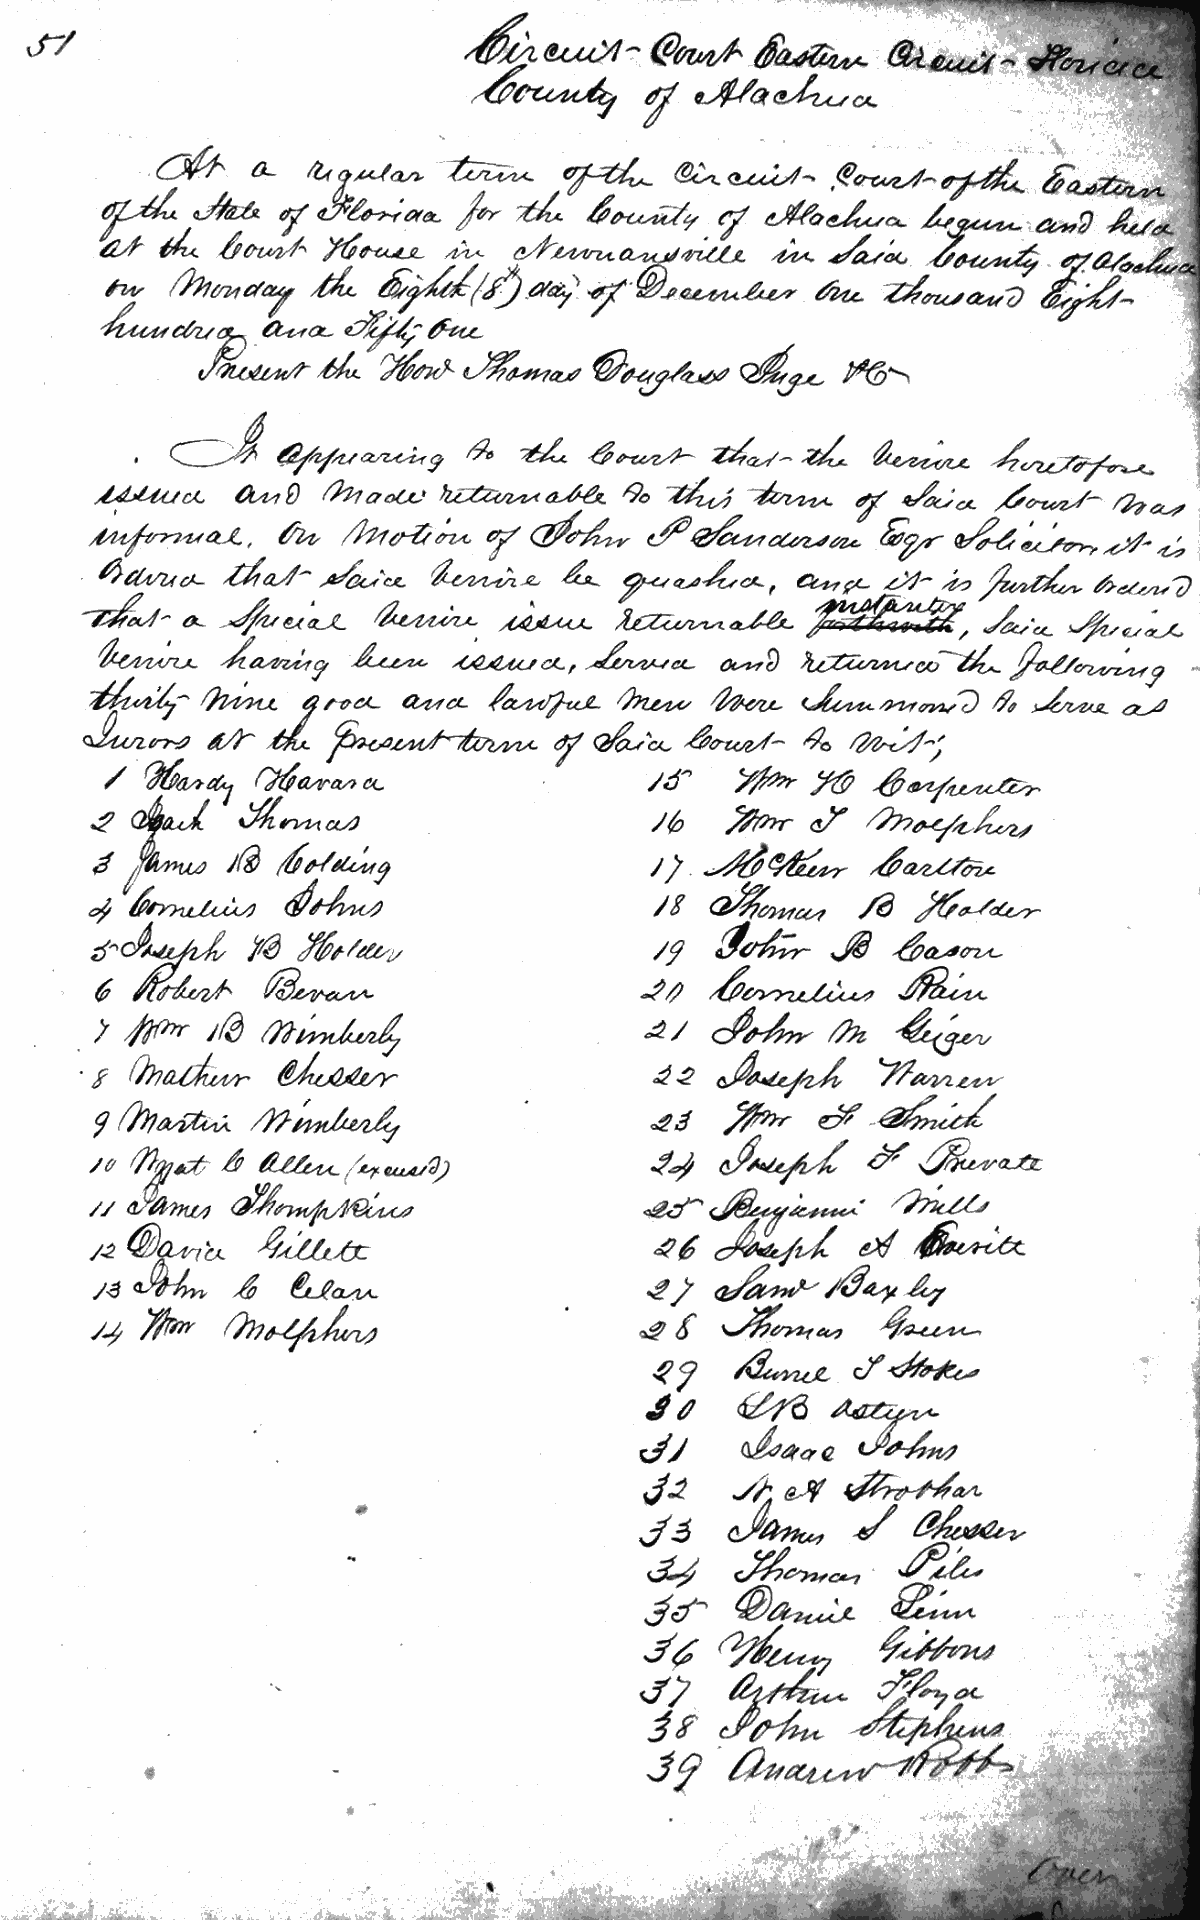 51
Circuit Court Eastern Circuit Florida
County of Alachua
At a regular term of the Circuit Court of the Eastern
of the State of Florida for the County of Alachua begun and held
at the Court House in Newnansville in Said County of Alachua
on Monday the Eighth (8th) day of December One thousand Eight
hundred and Fifty One
Present the Honl Thomas Douglass Juge &C
It appearing to the Court that the Venire heretofore
issued and Made returnable to this term of Said Court was
informal. On Motion of John P Sanderson Esqr Solicitor it is
Ordered that Said Venire be quashed, and it is further Ordered
instanter
that a Special Venire issue returnable forthwith, Said Special
Venire having been issued, Served and returned the following
thirty Nine good and lawful Men Were Summoned to Serve as
Jurors at the present term of Said Court to Wit;
1 Hardy Havard
2 Zach Thomas
3 James B Colding
4 Cornelius Johns
5 Joseph B Holder
6 Robert Bevan
7 Wm B Wimberly
8 Mathew Chesser
9 Martin Wimberly
10 Wyat C Allen (excused)
11 James Thompkins
12 David Gillett
13 John C Celan
14 Wm Molphers
15 Wm H Carpenter
16 Wm T Molphers
17 McKeen Carlton
18 Thomas B Holder
19 John B Cason
20 Cornelius Rain
21 John M Geiger
22 Joseph Warren
23 Wm F Smith
24 Joseph F Prevate
25 Benjamin Mills
26 Joseph A Everitt
27 Saml Baxley
28 Thomas Green
29 Burrel T Stokes
30 L B Osteen
31 Isaac Johns
32 N. A Strobhar
33 James S Chesser
34 Thomas Piles
35 Daniel Linn
36 Henry Gibbons
37 Arthur Floyd
38 John Stephens
39 Andrew Robbs
Over